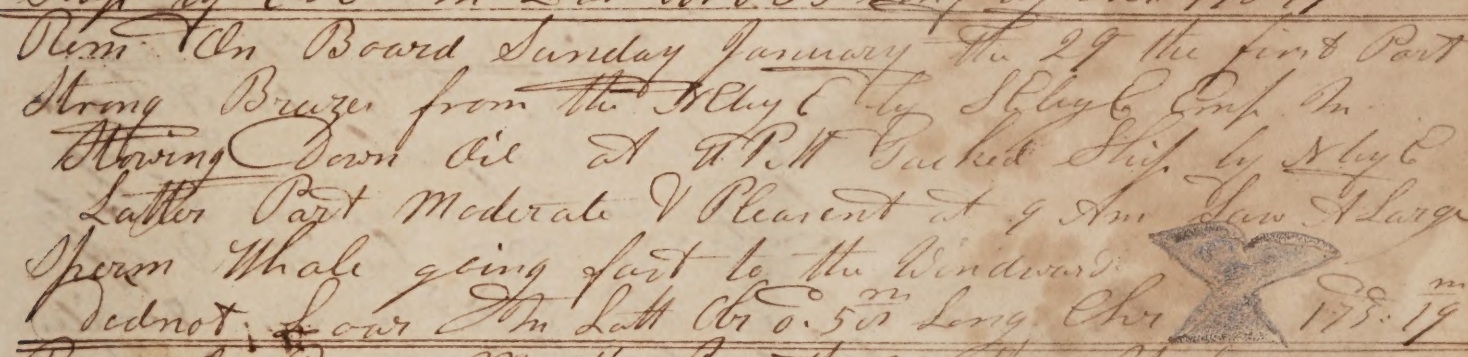 Rem On Board Sunday January the 29 the first Part
Strong Breezes from the N by E to S E by E Emp In
Stowing Down Oil at PM Tacked Ship to N by E
Latter Part Moderate & Pleasent at 9 Am Saw A Large
Sperm Whale going fast to the Windward
Did not Lower In Latt Obs 0. 50 m Long Chr 175: 19 m